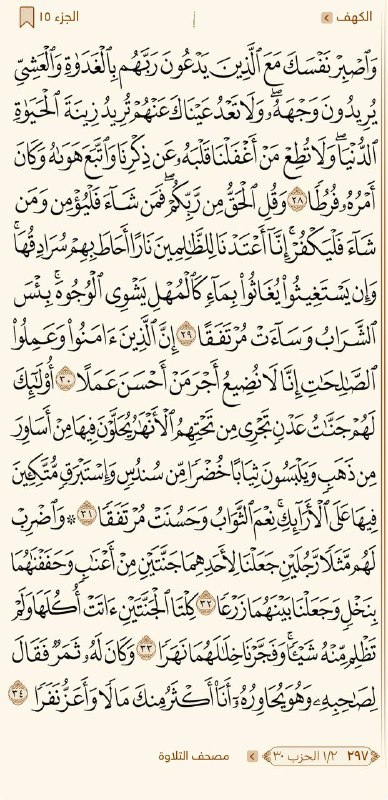 الكهف
الجزء ١٥
وَٱصۡبِرۡ نَفۡسَكَ مَعَ ٱلَّذِينَ يَدۡعُونَ رَبَّهُم بِٱلۡغَدَوٰةِ وَٱلۡعَشِيِّ
يُرِيدُونَ وَجۡهَهُۥۖ وَلَا تَعۡدُ عَيۡنَاكَ عَنۡهُمۡ تُرِيدُ زِينَةَ ٱلۡحَيَوٰةِ
ٱلدُّنۡيَاۖ وَلَا تُطِعۡ مَنۡ أَغۡفَلۡنَا قَلۡبَهُۥ عَن ذِكۡرِنَا وَٱتَّبَعَ هَوَىٰهُ وَكَانَ
أَمۡرُهُۥ فُرُطٗا ٢٨ وَقُلِ ٱلۡحَقُّ مِن رَّبِّكُمۡۖ فَمَن شَآءَ فَلۡيُؤۡمِن وَمَن
شَآءَ فَلۡيَكۡفُرۡۚ إِنَّآ أَعۡتَدۡنَا لِلظَّٰلِمِينَ نَارًا أَحَاطَ بِهِمۡ سُرَادِقُهَاۚ
وَإِن يَسۡتَغِيثُواْ يُغَاثُواْ بِمَآءٖ كَٱلۡمُهۡلِ يَشۡوِي ٱلۡوُجُوهَۚ بِئۡسَ
ٱلشَّرَابُ وَسَآءَتۡ مُرۡتَفَقًا ٢٩ إِنَّ ٱلَّذِينَ ءَامَنُواْ وَعَمِلُواْ
ٱلصَّٰلِحَٰتِ إِنَّا لَا نُضِيعُ أَجۡرَ مَنۡ أَحۡسَنَ عَمَلًا ٣٠ أُوْلَٰٓئِكَ
لَهُمۡ جَنَّٰتُ عَدۡنٖ تَجۡرِي مِن تَحۡتِهِمُ ٱلۡأَنۡهَٰرُ يُحَلَّوۡنَ فِيهَا مِنۡ أَسَاوِرَ
مِن ذَهَبٖ وَيَلۡبَسُونَ ثِيَابًا خُضۡرٗا مِّن سُندُسٖ وَإِسۡتَبۡرَقٖ مُّتَّكِـِٔينَ
فِيهَا عَلَى ٱلۡأَرَآئِكِۚ نِعۡمَ ٱلثَّوَابُ وَحَسُنَتۡ مُرۡتَفَقٗا ٣١ ۞ وَٱضۡرِبۡ
لَهُم مَّثَلٗا رَّجُلَيۡنِ جَعَلۡنَا لِأَحَدِهِمَا جَنَّتَيۡنِ مِنۡ أَعۡنَٰبٖ وَحَفَفۡنَٰهُمَا
بِنَخۡلٖ وَجَعَلۡنَا بَيۡنَهُمَا زَرۡعٗا ٣٢ كِلۡتَا ٱلۡجَنَّتَيۡنِ ءَاتَتۡ أُكُلَهَا وَلَمۡ
تَظۡلِم مِّنۡهُ شَيۡـٔٗاۚ وَفَجَّرۡنَا خِلَٰلَهُمَا نَهَرٗا ٣٣ وَكَانَ لَهُۥ ثَمَرٞ فَقَالَ
لِصَٰحِبِهِۦ وَهُوَ يُحَاوِرُهُۥٓ أَنَا۠ أَكۡثَرُ مِنكَ مَالٗا وَأَعَزُّ نَفَرٗا ٣٤
٢٩٧ ١/٢ الحزب ٣٠
مصحف التلاوة